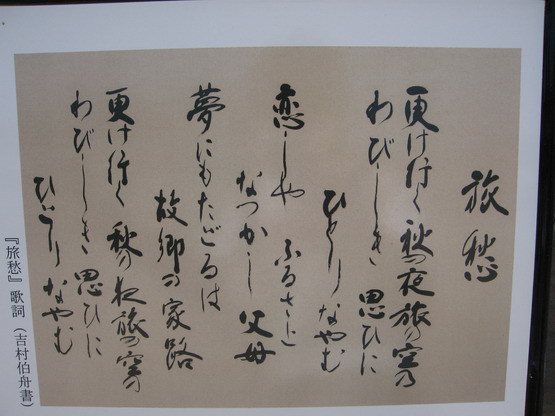 旅愁
更け行く秋の夜旅の空の
わびしき思ひに
ひとりなやむ
恋しやふるさと
なつかし父母
夢にもたどるは
故郷の家路
更け行く秋の夜旅の空の
わびしき思ひに
ひとりなやむ
『旅愁』歌詞(吉村伯舟書)